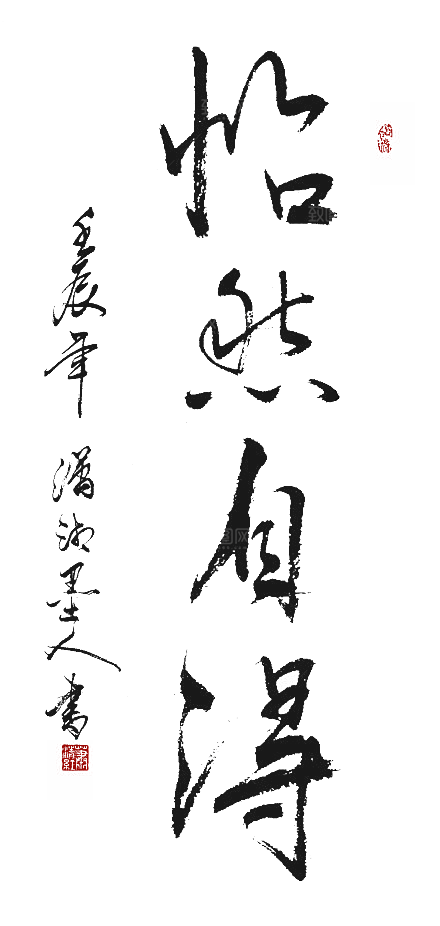 怡然自得
壬辰年 潇湘墨人书